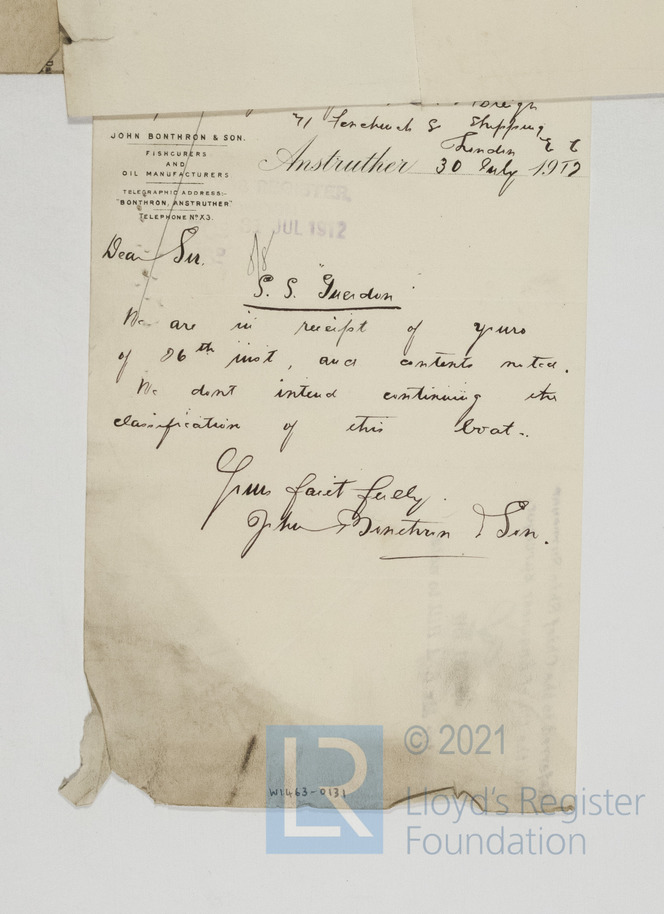 Foreign
71 Fenchurch St Shipping
London E C
JOHN BONTHRON & SON.
FISHCURERS
AND
OIL MANUFACTURERS
TELEGRAPHIC ADDRESS:-
"BONTHRON, ANSTRUTHER"
TELEPHONE No X3.
Anstruther 30 July 1912
REGISTER,
31 JUL 1912
Dear Sir.
S. S. "Guerdon"
We are in receipt of yours
of 26th inst, and contents noted.
We dont intend continuing the
classification of this boat.
Yours faithfully.
John Bonthron & Son.
W1463-0131
LR
© 2021
Lloyd's Register
Foundation